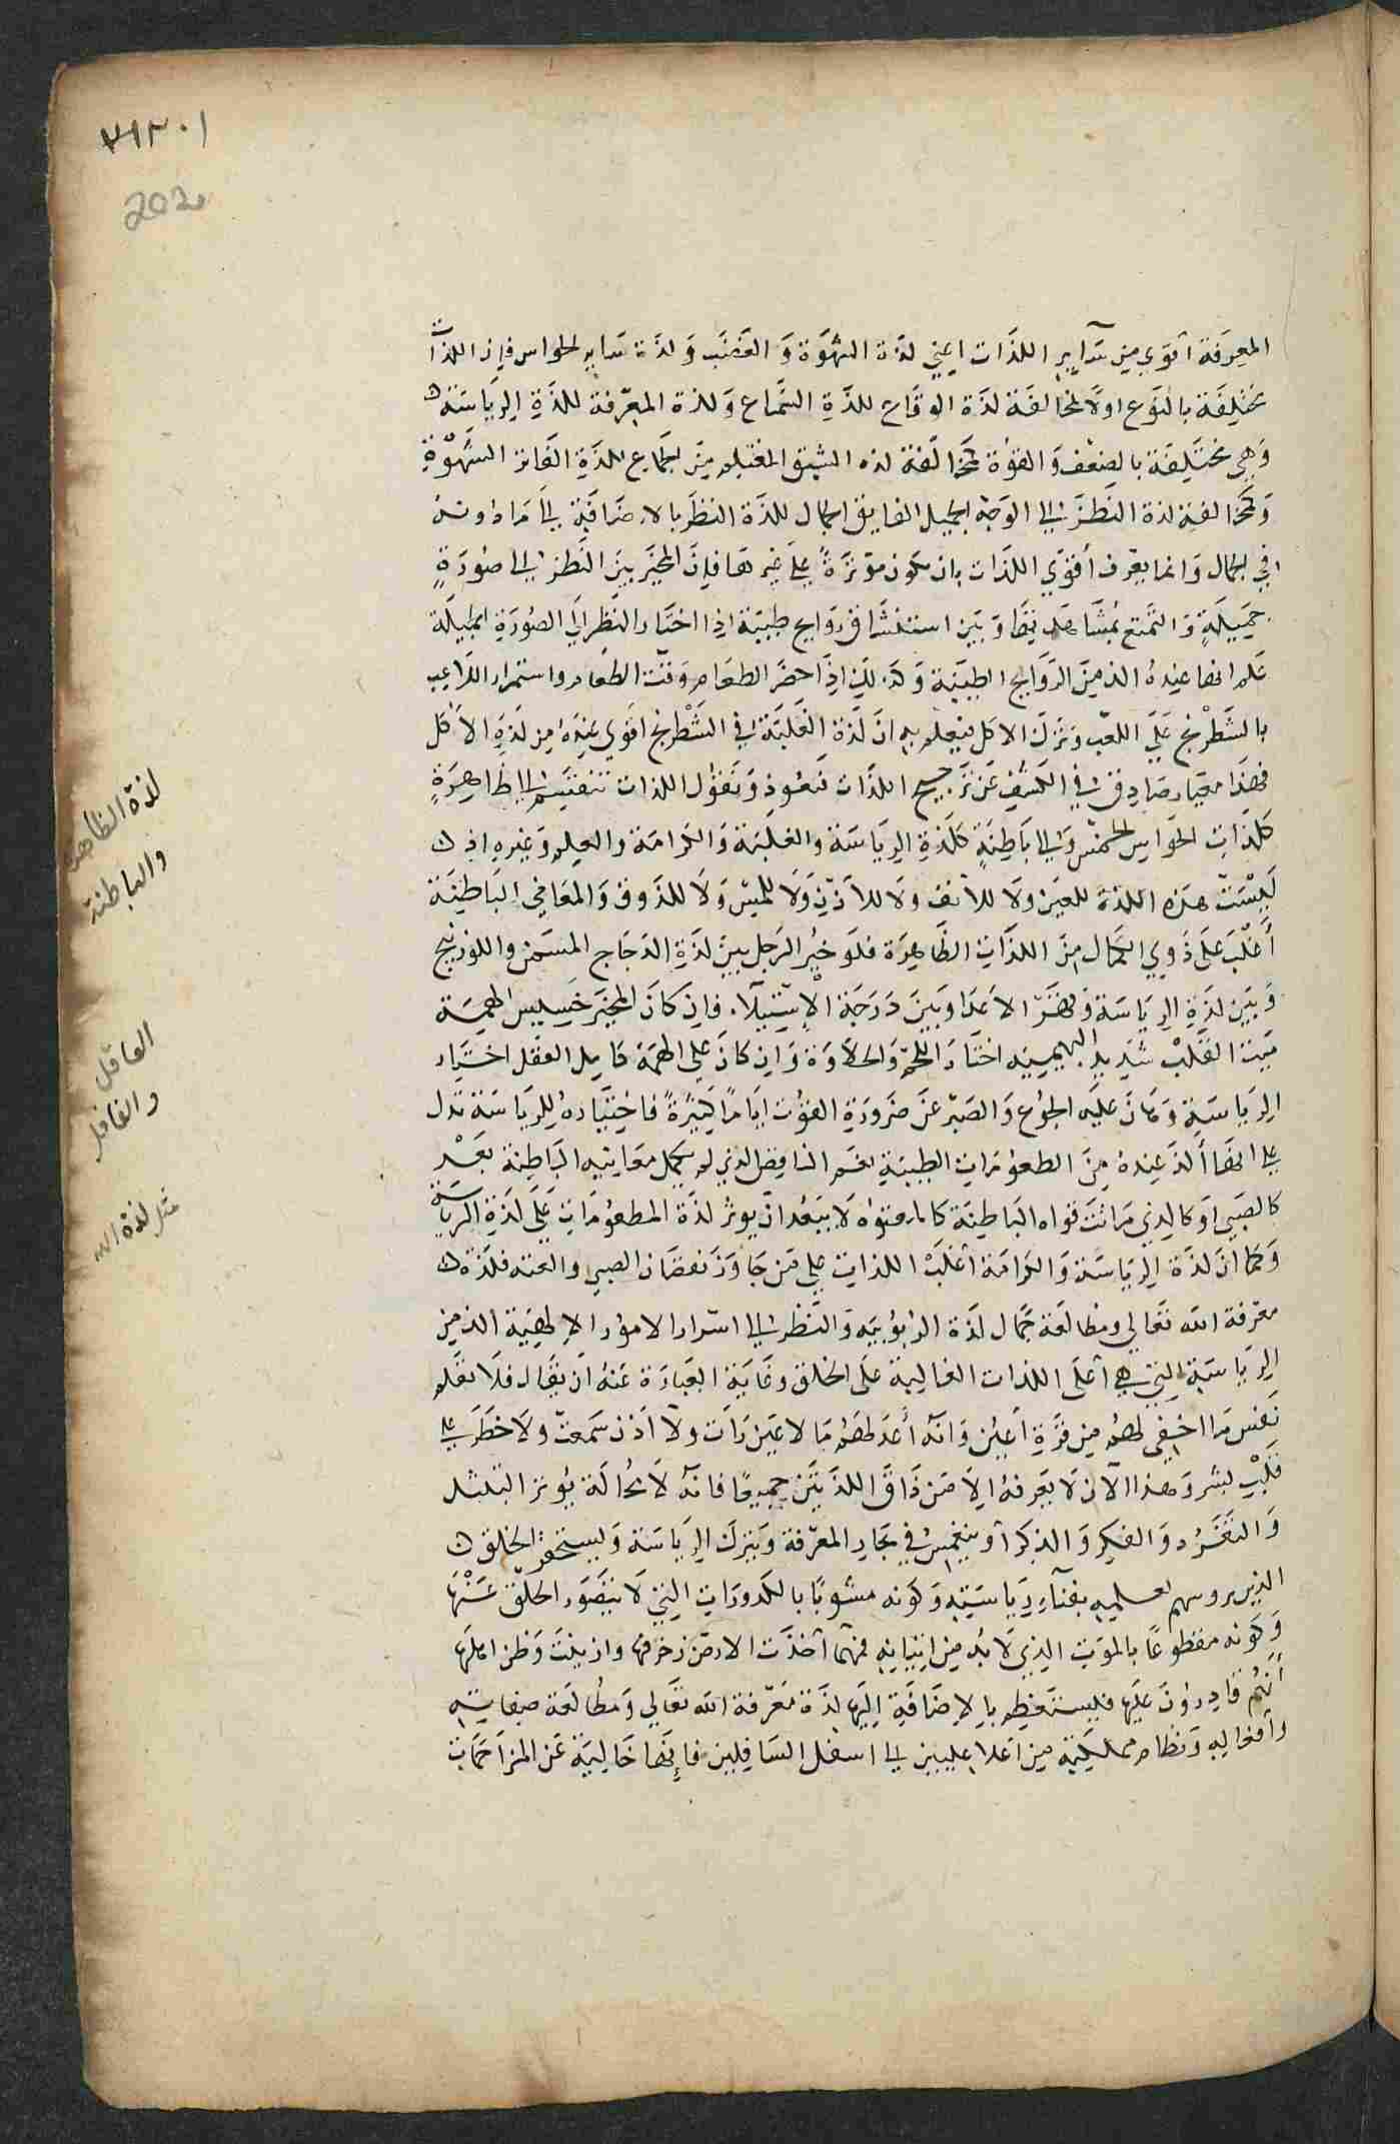 ٧١٣٠١
202
المعرفة اقوي من سآير اللذات اعني لذة الشهوة والغضب ولذة ساير الحواس فان اللذات
مختلفة بالنوع اولا كمخالفة لذة الوقاع للذة السماع ولذة المعرفة للذة الرياسة
وهي مختلفة بالضعف والقوة كمخالفة لذة الشبق المغتلم من الجماع للذة الفاتر الشهوة
وكمخالفة لذة النظر الي الوجه الجميل الفايق الجمال للذة النظر بالاضافة الي ما دونه
في الجمال وانما يعرف أقوي اللذات بان تكون مؤثرة علي غيرها فإن المخير بين النظر الي صورة
جميلة والتمتع بمشاهدتها وبين استنشاق روايح طيبة اذا اختار النظر الي الصورة الجميلة
علم انها عنده الذ من الروايح الطيبة وكذلك اذا حضر الطعام وقت الطعام واستمر اللاعب
بالشطرنج علي اللعب وترك الاكل فيعلم به ان لذة الغلبة في الشطرنج اقوي عنده من لذة الأكل
فهذا معيار صادق في الكشف عن ترجيح اللذات فنعود ونقول اللذات تنقسم الي ظاهرة
كلذات الحواس الخمس والي باطنة كلذة الرياسة والغلبة والكرامة والعلم وغيره اذ
ليست هذه اللذة للعين ولا للأنف ولا للأذن ولا للمس ولا للذوق والمعاني الباطنة
أغلب علي ذوي الكمال من اللذات الظاهرة فلو خير الرجل بين لذة الدجاج المسمن واللوزينج
وبين لذة الرياسة وقهر الاعدا وبين درجة الإستيلاء فان كان المخير خسيس الهمة
ميت القلب شديد البهيمية اختار اللحم والحلاوة وان كان علي الهمة كامل العقل اختار
الرياسة وهان عليه الجوع والصبر عن ضرورة القوت اياما كثيرة فاختياره للرياسة تدل
علي انها ألذ عنده من الطعومات الطيبة نعم الناقص الذي لم يكمل معانيه الباطنة بعد
كالصبي او كالذي ماتت قواه الباطنة كالمعتوه لا يبعد ان يوثر لذة المطعومات علي لذة الرياسة
وكما ان لذة الرياسة والكرامة اغلب اللذات علي من جاوز نقصان الصبي والعته فلذة
معرفة الله تعالي ومطالعة جمال لذة الربوبيه والنظر الي اسرار الامور الإلهية الذ من
الرياسة التي هي أعلي اللذات الغالبة علي الخلق وغاية العبارة عنه ان يقال فلا تعلم
نفس ما اخفي لهم من قرة أعين وانه أعد لهم ما لا عين رات ولا اذن سمعت ولا خطر علي
قلب بشر وهذا الآن لا يعرفه الا من ذاق اللذتين جميعا فانه لا محالة يوثر التبتل
والتفرد والفكر والذكر أو ينغمس في بحار المعرفة ويترك الرياسة ويستحقر الخلق
الذين يروسهم لعلميه بفنآء رياسته وكونه مشوبا بالكدورات التي لا يتصور الخلق عنها
وكونه مقطوعا بالموت الذي لا بد من اتيانه فمهما أخذت الارض زخرفها وازينت وظن اهلها
أنهم قادرون عليها فيستعظم بالإضافة اليها لذة معرفة الله تعالي ومطالعة صفاته
وأفعاله ونظام مملكته من اعلا عليين الي اسفل السافلين فإنها خالية عن المزاحمات
لذة الظاهرة
والباطنة
العاقل
والغافل
مثل لذة الله